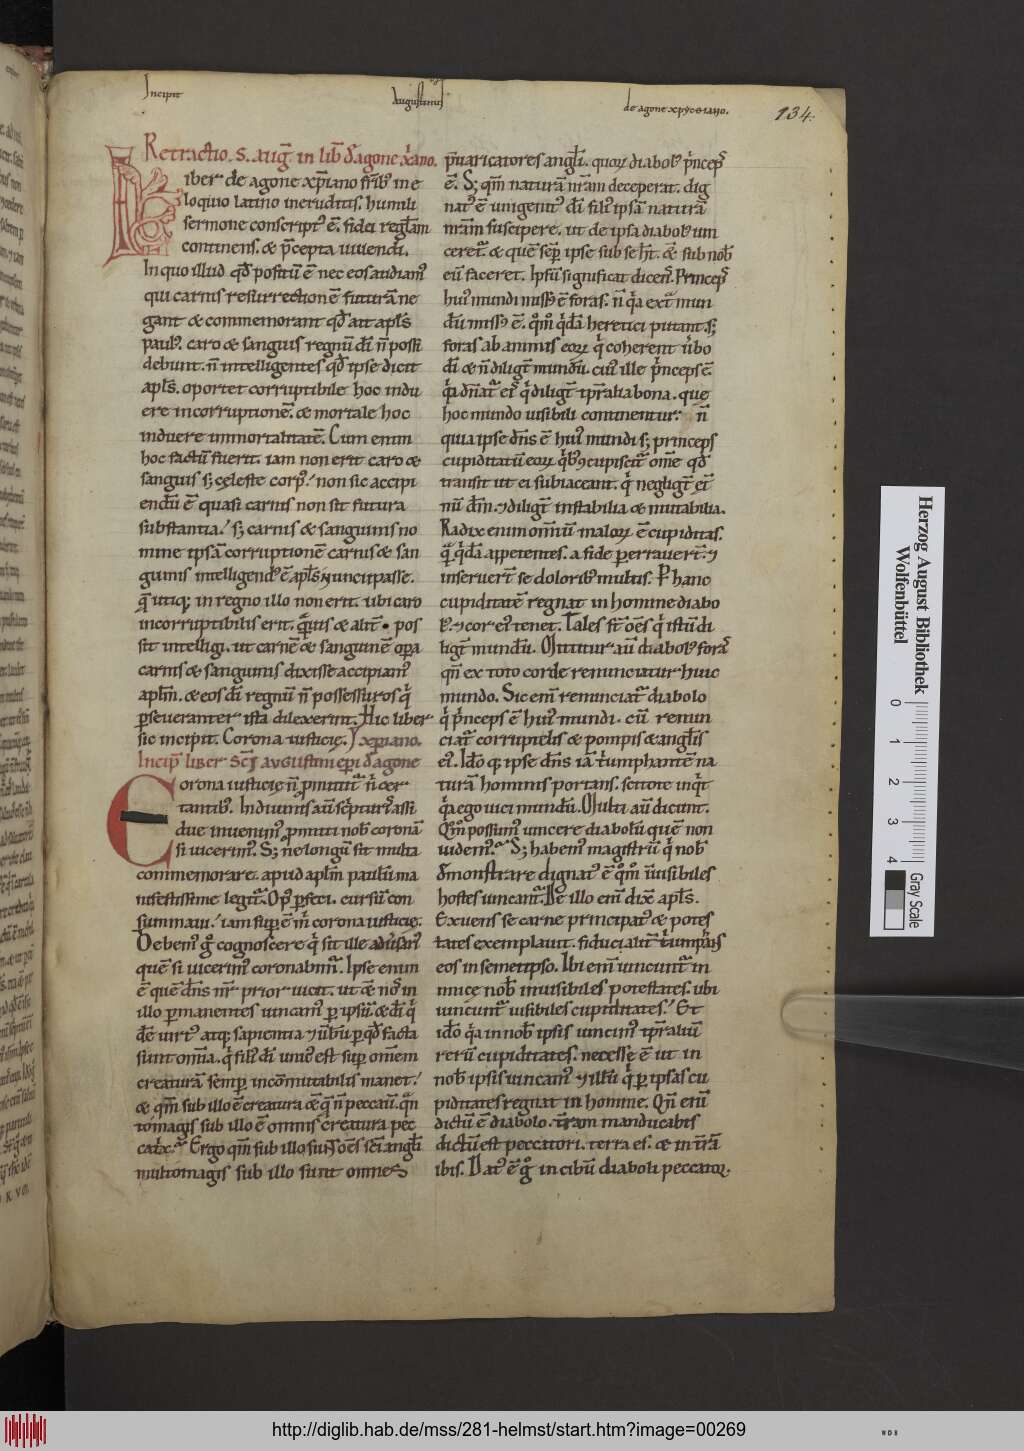 Incipit Augustinus de agone xpristiano. 134.
Retractio. S. aug̅. in lib̅ d̕ agone xp̅iano.
Liber de agone xp̅iano fr̅ib; in e
loquio latino ineruditis. humili
sermone conscript᷒ ē. fidei regl̅am
continens. & p̅cepta uiuendi.
In quo illud qd̅ positū ē nec eos audiam᷒
qui carnis resurrectionē futurā ne
gant & commemorant qd̅ ait apl̅s
paul᷒. caro & sanguis regnū dī n̅ possi
debunt. n̅ intelligentes qd̅ ipse dicit
apl̅s. oportet corruptibile hoc indu
ere incorruptionē. & mortale hoc
induere immortalitatē. Cum enim
hoc factū fuerit. iam non erit caro &
sanguis s; cęleste corp᷒. non sic accipi
endū ē quasi carnis non sit futura
substantia. s; carnis & sanguinis no
mine ipsā corruptionē carnis & san
guinis intelligend᷒ ē apl̅s nuncupasse.
q̅ utiq; in regno illo non erit. ubi caro
incorruptibilis erit. q̅uis & alit̅ pos
sit intelligi. ut carnē & sanguinē opa
carnis & sanguinis dixisse accipiam᷒
apl̅m. & eos dī regnū n̅ possessuros q̍
pseueranter ista dilexerint. Hic liber
sic incipit. Corona uictorię.
Incip̅ liber S̅c̅i augustini ep̅i d̕ agone xpiano.
Corona uictorię n̅ pmittit̅ n̅ cer
tantib᷒. In diuinis aū scripturis assi
due inuenim᷒ pmitti nob̅ coronā
si uicerim᷒. S; ne longū sit multa
commemorare. apud apl̅m paulū ma
nifestissime legit̅. Op᷒ pfeci. cursū con
summaui. iam sup̅ ē m̍ corona iusticię.
Debem᷒ g̊ cognoscere q̍ sit ille aduersari᷒
quē si uicerim᷒ coronabim̅. Ipse enim
ē quē dn̅s nr̅ prior uicit. ut & nos in
illo pmanentes uincam᷒ p ipsū. & dī q̍
dē uirt᷒ atq; sapientia & uerbū p qd̅ facta
sunt om̅ia. q̍ fili᷒ dī unic᷒ est sup om̅em
creaturā semp incōmutabilis manet.
& qm̅ sub illo ē creatura & q̅ n̅ peccauit. q̅n
tomagis sub illo ē omnis creatura pec
catrix. Ergo qm̅ sub illo sunt oēs sc̅i angl̅i
multomagis sub illo sunt omnes
p̅uaricatores angl̅i. quoꝝ diabol᷒ p̍nceps
ē. S; qm̅ naturā nr̅am deceperat. dig
nat᷒ ē unigenit᷒ dī fili᷒ ipsā naturā
nr̅am suscipere. ut de ipsa diabol᷒ uin
ceret̅. & quē sep̅ ipse sub se ht̅. & sub nob̅
eū faceret. Ipsū significat dicens. Princeps
hui᷒ mundi miss᷒ ē foras. n̅ q̍a extra mun
dū miss᷒ ē. qm̊ q̍dā heretici putant s;
foras ab animis eoꝝ q̍ coherent uerbo
dī & n̅ diligt̅ mundū. cui᷒ ille p̍nceps ē
q̍a dn̅at̅ eis q̍ diligt̅ tp̅ralia bona. quę
hoc mundo uisibili continentur. n̅
quia ipse dn̅s ē hui᷒ mundi s; princeps
cupiditatū eaꝝ q̍b᷒ c̅cupiscit̅ om̅e qd̅
transit ut ei subiaceant. q̍ negligt̅ et̅
nū dm̅. & diligt̅ instabilia & mutabilia.
Radix enim om̅iū maloꝝ ē cupiditas.
qā q̍dā appetentes. a fide perrauert̅. &
inseruert̅ se dolorib᷒ multis. P hanc
cupiditatē regnat in homine diabo
l᷒. & cor ei᷒ tenet. Tales st̅ oēs q̍ istū di
ligt̅ mundū. Mittitur aū diabol᷒ foras
qn̅ ex toto corde renunciatur huic
mundo. Sic eni̅ renunciat̅ diabolo
q̍ p̍nceps ē hui᷒ mundi. cū renun
ciat̅ corruptelis & pompis & angl̅is
ei᷒. Ido̅ q; ipse dn̅s iā triumphantē na
turā hominis portans. scitote inq̍t
q̍a ego uici mundū. Multi aū dicunt.
Qm̊ possum᷒ uincere diabolū quē non
uidem᷒. S; habem᷒ magistrū q̍ nob̅
d̕monstrare dignat᷒ ē qm̊ inuisibiles
hostes uincant̅. De illo eni̅ dix̅ apl̅s.
Exuens se carne principat᷒ & potes
tates exemplauit. fiducialit̅ triumphans
eos in semetipso. Ibi eni̅ uincunt̅ in
imicę nob̅ inuisibiles potestates. ubi
uincunt̅ uisibiles cupiditates. Et
ido̅ q̍a in nob̅ ipsis uincim᷒ tp̅raliū
rerū cupiditates. necesse ē ut in
nob̅ ipsis uincam᷒ & illū q̍ p ipsas cu
piditates regnat in homine. Qn̅ enī
dictū ē diabolo. terram manducabis
dictū est peccatori. terra es. & in terrā
ibis. Dat᷒ ē g̊ in cibū diaboli peccator.
Herzog August Bibliothek
Wolfenbüttel
0 1 2 3 4
Gray Scale
http://diglib.hab.de/mss/281-helmst/start.htm?image=00269